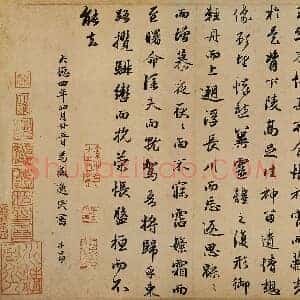 於是背下陵高足往神留遺情想
像顧望懷愁冀靈體之復形御
輕舟而上遡浮長川而忘返思緜〻
而增慕夜耿〻而不寐霑繁霜而
至曙命僕夫而就駕吾將歸乎東
路攬騑轡而抗策悵盤桓而不
能去
大德四年四月廿五日為盛逸民書 子昂